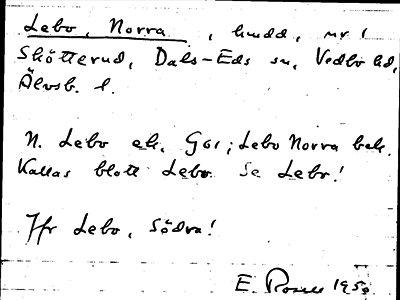 Lebo, Norra, hmdd, nr 1
Skötterud, Dals-Eds sn, Vedbo hd,
Älvsb. l.
N. Lebo ek. G01; Lebo Norra bek.
Kallas blott Lebo. Se Lebo!
Jfr Lebo, Södra!
E. 1959